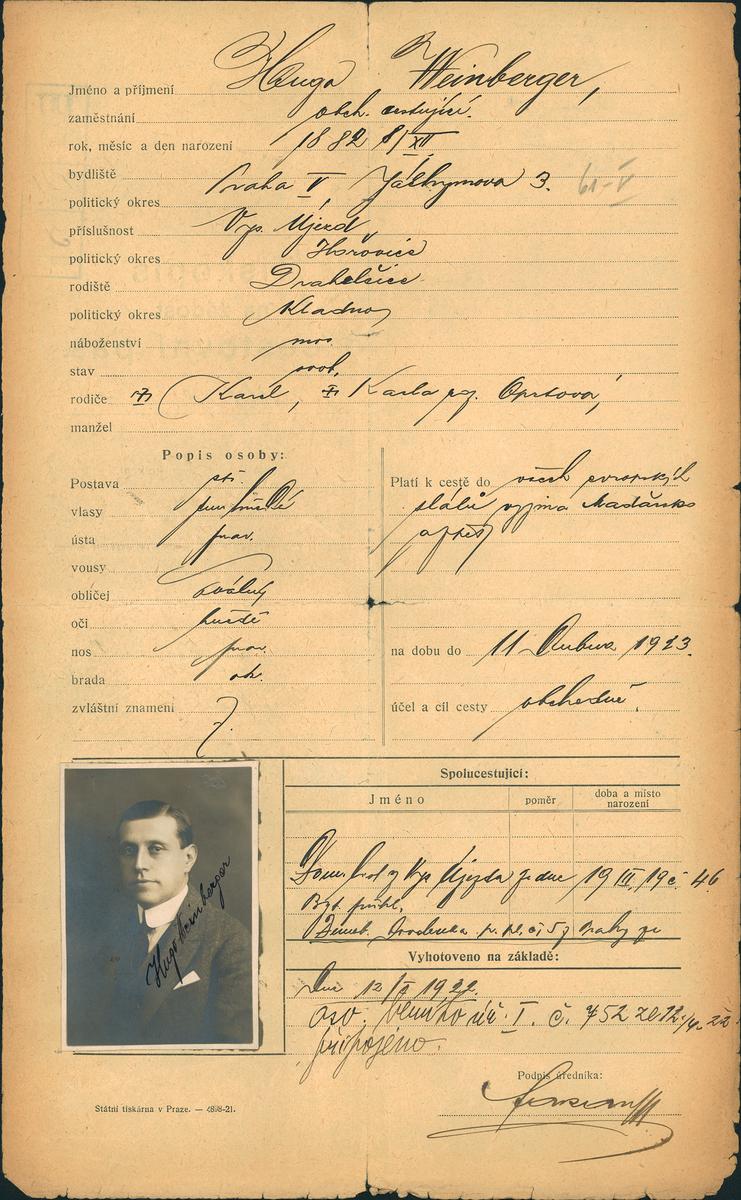 Jméno a příjmení Hugo Weinberger,
zaměstnání obch. cestující.
rok, měsíc a den narození 1882 8/XII
bydliště Praha V Jáchymova 3. 61-V
politický okres
příslušnost Vys. Újezd
politický okres Hořovice
rodiště Drahelčice
politický okres Kladno
náboženství mos.
stav svob.
rodiče Karel, Karla roz.
manžel
Popis osoby:
Postava stř.
vlasy tm. hnědé
ústa prav.
vousy
obličej oválný
oči hnědé
nos prav.
brada ob.
zvláštní znamení
Platí k cestě do všech evropských
států vyjma Maďarsko
a zpět
na dobu do 11 Dubna 1923.
účel a cíl cesty obchodně.
Spolucestující:
Jméno poměr doba a místo narození
Dom. list z Vys. Újezda ze dne 19 III. 19 č. 46
Byt. přihl.
Vyhotoveno na základě:
Dne 12/ 1922
I. č. 752 ze 12./4. 22
připojeno.
Podpis úředníka:
Hugo Weinberger
Státní tiskárna v Praze. — 4898-21.